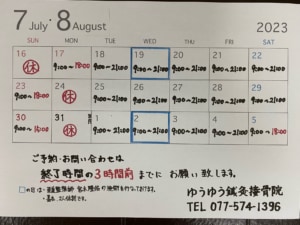 7 July・8 August 2023
SUN MON TUE WED THU FRI SAT
16 17 18 19 20 21 22
休 9:00~18:00 9:00~21:00 9:00~21:00 9:00~21:00 9:00~21:00 9:00~21:00
23 24 25 26 27 28 29
9:00~18:00 休 9:00~21:00 9:00~21:00 9:00~21:00 9:00~21:00 9:00~18:00
30 31 1 2 3 4 5
9:00~ 休 9:00~21:00 9:00~21:00 9:00~21:00 9:00~21:00 9:00~18:00
ご予約・お問い合わせは
終了時間の3時間前までに お願い致します。
ゆうゆう鍼灸接骨院
TEL 077-574-1396